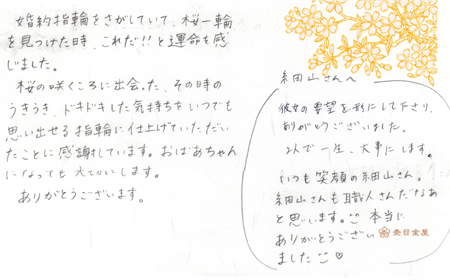 婚約指輪をさがしていて、桜一輪
を見つけた時、これだ!!と運命を感
じました。
桜の咲くころに出会った、その時の
うきうき、ドキドキした気持ちをいつでも
思い出せる指輪に仕上げていただい
たことに感謝しています。おばあちゃん
になっても大切にします。
ありがとうございます。
細田山さんへ
彼女の要望を形にして下さり、
ありがとうございました。
2人で一生、大事にします。
いつも笑顔の細田山さん。
細田山さんも職人さんだなぁ
と思います。本当に
ありがとうござい
ました
杢目金屋